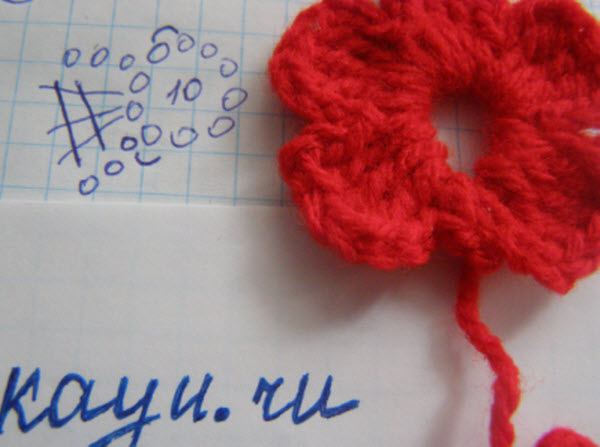 10
kayu.ru